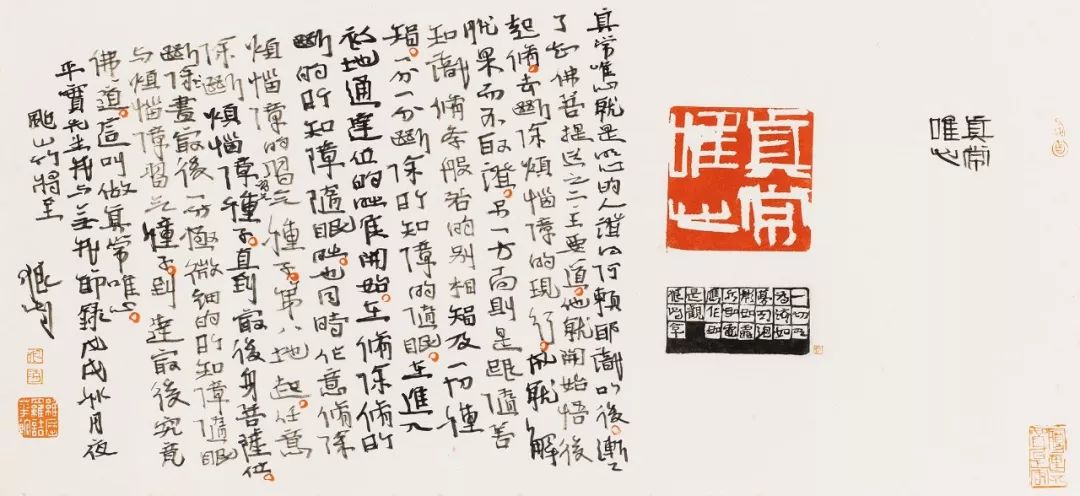 真常
唯心
真常
唯心
一切有
為法如
夢幻泡
影如露
亦如電
應作如
是觀
真常唯心就是悟心的人證得阿賴耶識以後。漸漸
了知佛菩提道之二主要道。他就開始悟後
起脩。去斷除煩惱障的現行。成就解
脫果而不取證。另一方面則是跟隨善
知識脩學般若的別相智及一切種
智。一分一分斷除所知障的隨眠。在進入
初地通達位的時候開始。在脩除脩所
斷的所知障隨眠時也同時作意脩除
煩惱障的習氣種子。第八地起任意
除斷煩惱障習氣種子。直到最後身菩薩位。
斷除盡最後一分極微細的所知障隨眠
与煩惱障習氣種子。到達最後究竟
佛道。這叫做真常唯心。
平實先生我与無我節錄戊戌秋月夜
颱山竹將至